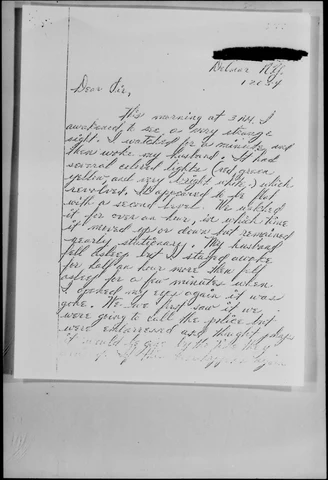 Delmar N.Y.
12054
Dear Sir,
This morning at 3 AM I
awakened to see a very strange
sight. I watched for a minute and
then woke my husband. It had
several colored lights (red green
yellow and very bright white) which
revolved. It appeared to be flat
with a second level. We watched
it for over an hour, in which time
it moved up or down but remained
nearly stationary. My husband
fell asleep but I stayed awake
for half an hour more then fell
asleep for a few minutes when
I opened my eyes again it was
gone. When we first saw it we
were going to call the police but
were embarressed and thought
it would be gone by the time they